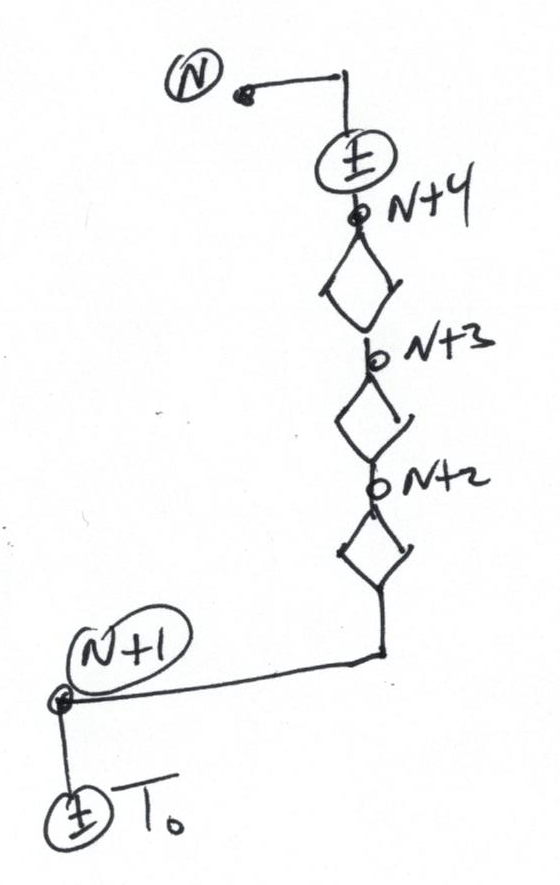 N
±
N+4
N+3
N+2
N+1
± T₀